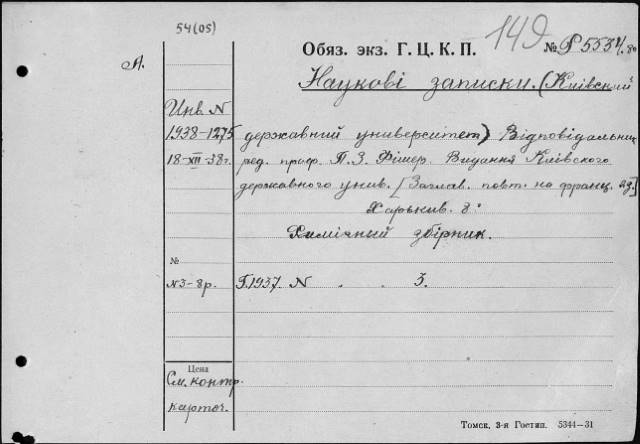 54(05)
Обяз. экз. Г. Ц. К. П.
149
№ Р 5537/80
А.
Наукові записки. (Київский
Инв. N
1938-1275 державний университет) Відповідальник
18-XII-38г. ред. проф. П. З. Фішер. Видання Київского
державного унив. [Заглав. повт. на франц. яз.]
Харькив. 8°
Химічный збірник.
№
N3-8р. Г. 1937. N . . 3.
Цена
См. контр.
карточ.
Томск, 3-я Гостип. 5344—31